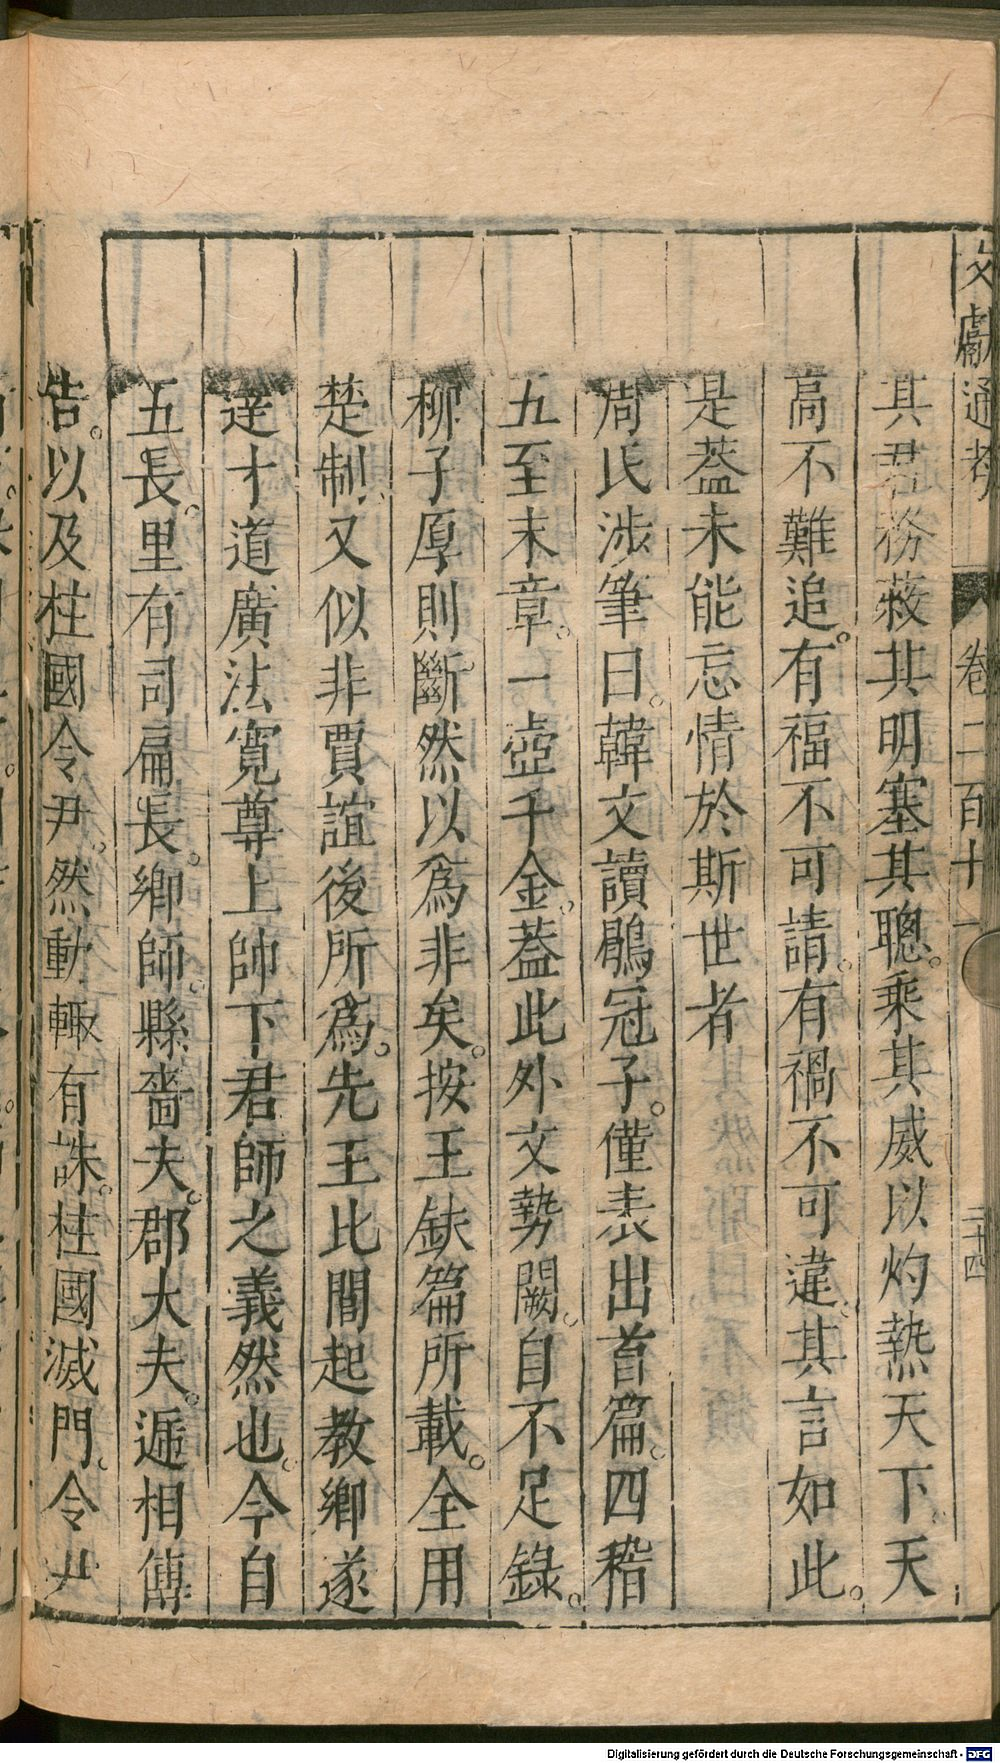 文獻通考 卷二百十一 三十四
其君務蔽其明塞其聰。乘其威以灼熱天下。天
高不難追。有福不可請。有禍不可違。其言如此。
是蓋未能忘情於斯世者
周氏涉筆曰。韓文讀鶡冠子。僅表出首篇。四稽
五至末章。一壺千金。蓋此外文勢闕。自不足錄。
柳子厚則斷然以爲非矣。按王鈇篇所載。全用
楚制。又似非賈誼後所爲。先王比閭起教鄉遂
達才道廣法寛尊上帥下君師之義然也。今自
五長。里有司扁長。鄉師。縣嗇夫。郡大夫。遞相傳
告。以及柱國令尹。然動輙有誅。柱國滅門。令尹
Digitalisierung gefördert durch die Deutsche Forschungsgemeinschaft - DFG